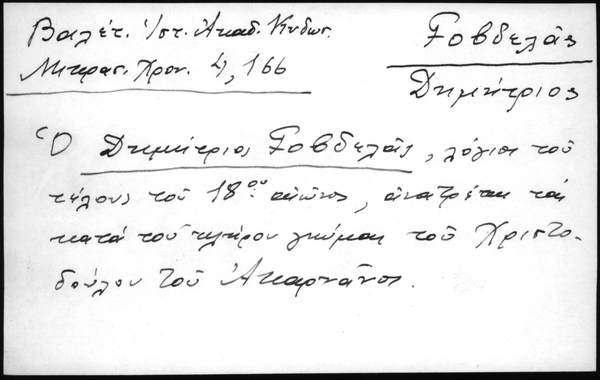 Βαλέτ. Ἱστ. Ἀκαδ. Κυδων.
Μικρασ. Χρον. 4, 166
Γοβδελᾶς
Δημήτριος
Ὁ Δημήτριος Γοβδελᾶς, λόγιος τοῦ
τέλους τοῦ 18ου αἰῶνος, ἀνατρέπει τὰς
κατὰ τοῦ κλήρου γνώμας τοῦ Χριστο-
δούλου τοῦ Ἀκαρνᾶνος.